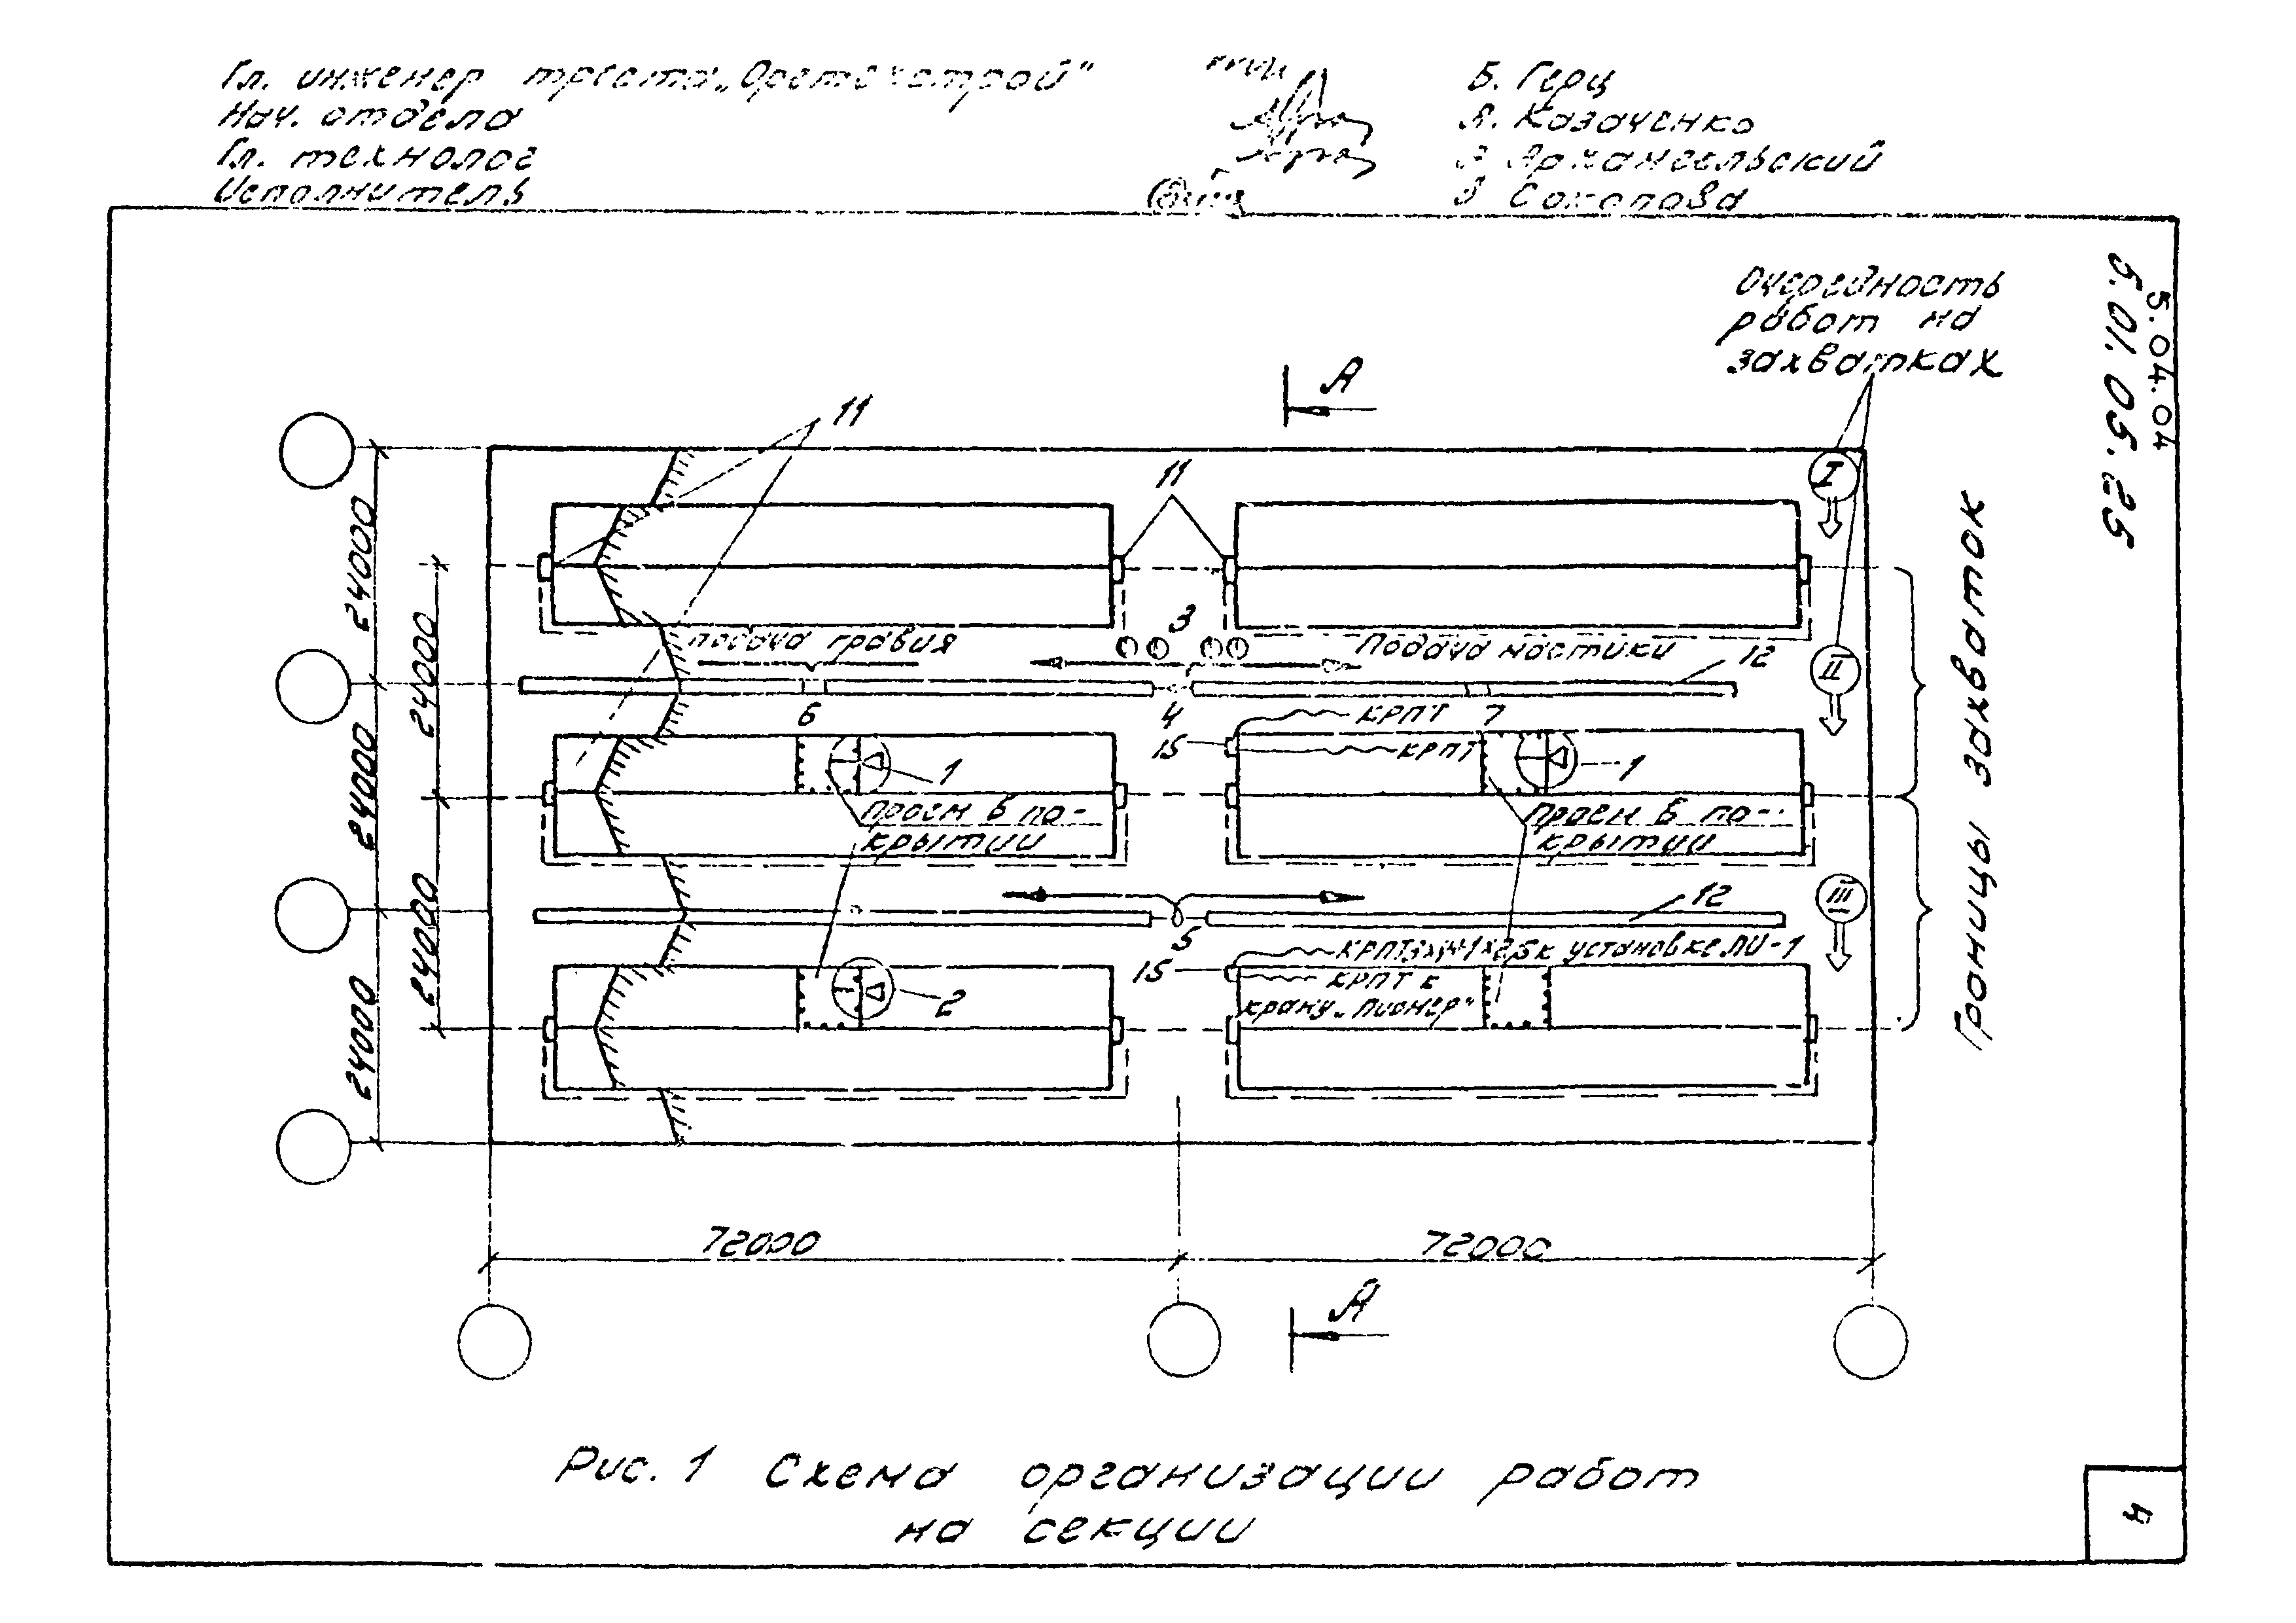 Гл. инженер треста „Оргтехстрой"
Нач. отдела
Гл. технолог
Исполнитель
Б. Герц
Я. Казаченко
Архангельский
Соколова
5.04.04
5.01.05.25
Очередность
работ на
захватках
А
11
11
I
24000
24000
24000
24000
24000
3
подача гравия
Подача мастики
12
II
6
4
КРПТ
7
15
КРПТ
1
1
проем в по-
крытии
проем в по-
крытии
12
III
5
КРПТ к установке ПИ-1
15
КРПТ к
крану „Пионер"
2
Границы захваток
72000
72000
А
Рис. 1 Схема организации работ
на секции
4